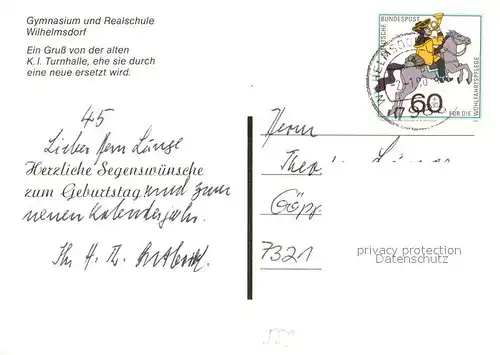 Gymnasium und Realschule
Wilhelmsdorf
Ein Gruß von der alten
K.I. Turnhalle, ehe sie durch
eine neue ersetzt wird.
DEUTSCHE BUNDESPOST
60
FÜR DIE
WOHLFAHRTSPFLEGE
WILHELMSDORF
45
Lieber Herr Länge
Herzliche Segenswünsche
zum Geburtstag und zum
neuen Kalenderjahr.
Ihr H. Th.
Herrn
Theo
Göpp
7321
privacy protection
Datenschutz